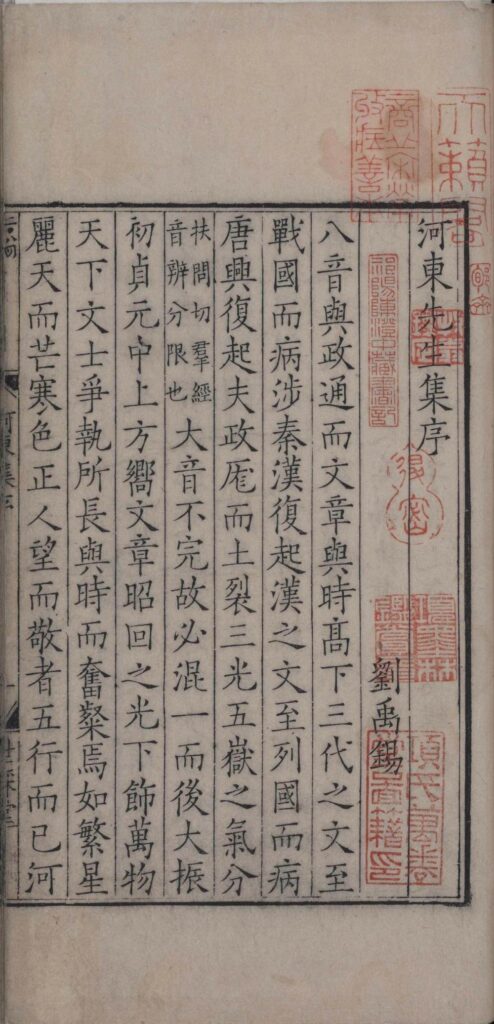 天籟閣
河東先生集序
祁陽陳澄中藏書記
劉禹錫
八音與政通而文章與時髙下三代之文至
戰國而病涉秦漢復起漢之文至列國而病
唐興復起夫政厖而土裂三光五嶽之氣分
扶問切羣經
音辨分限也
大音不完故必混一而後大振
初貞元中上方嚮文章昭回之光下飾萬物
天下文士爭執所長與時而奮粲焉如繁星
麗天而芒寒色正人望而敬者五行而已河